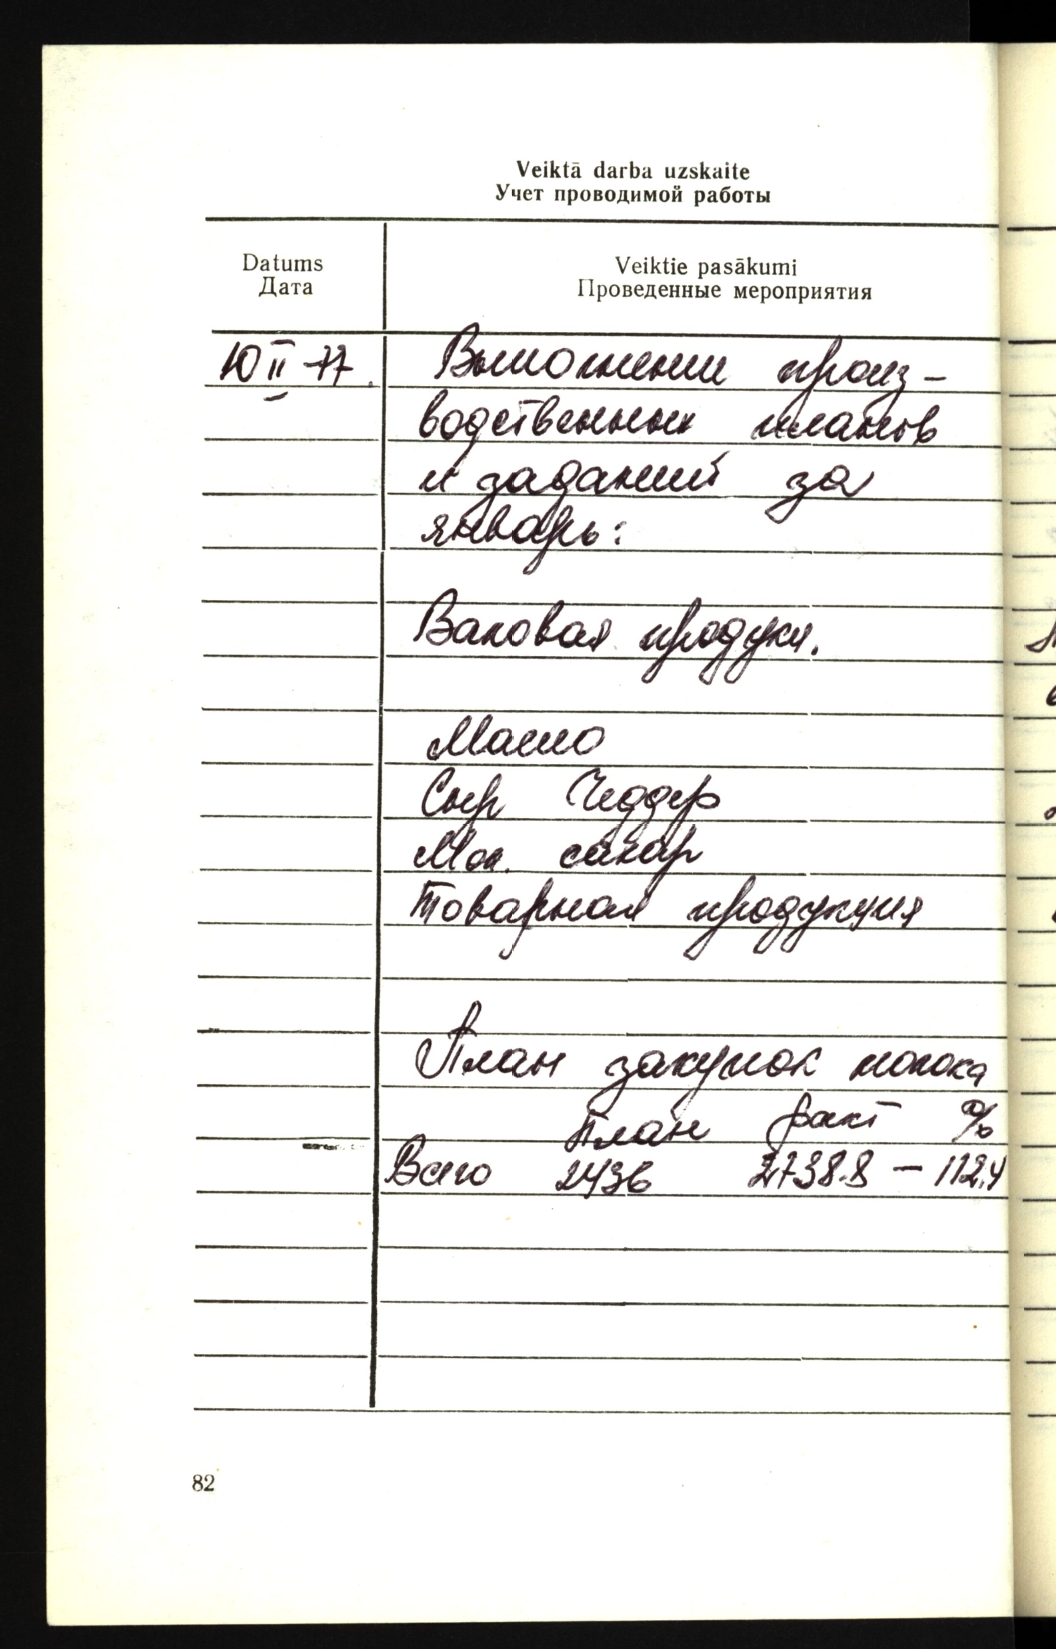 Veiktā darba uzskaite
Учет проводимой работы
Datums
Дата
Veiktie pasākumi
Проведенные мероприятия
10 II 77. Выполнении произ-
водственных планов
и заданий за
январь:
Валовая продукц.
Масло
Сыр Чеддер
Мол. сахар
Товарная продукция
План закупок молока
План факт %
Всего 2436 2738.8 — 112,4
82